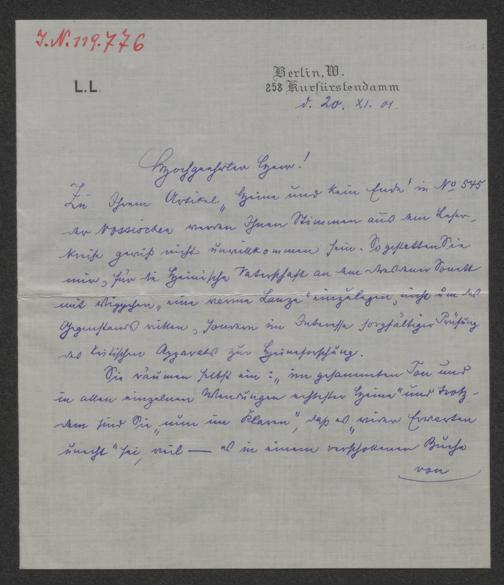 J.N. 119.776
L.L.
Berlin, W.
258 Kurfürstendamm
d. 20. XI. 01
Hochgeehrter Herr!
Zu Ihrem Artikel „Heine und kein Ende" in No 545
der Vossischen werden Ihnen Stimmen aus dem Leser-
kreise gewiß nicht unwillkommen sein. So gestatten Sie
mir, für die Heinische Vaterschaft an dem Sonett
mit „eine Lanze" einzulegen, nicht um des
Gegenstands willen, sondern im Interesse sorgfältiger Prüfung
des kritischen Apparats zur Heineforschung.
Sie räumen selbst ein: „im gesammten Ton und
in allen einzelnen Wendungen echtester Heine" und trotz-
dem sind Sie „nun im Klaren", daß es „wider Erwarten
unecht" sei, weil — es in einem verschollenen Buche
von